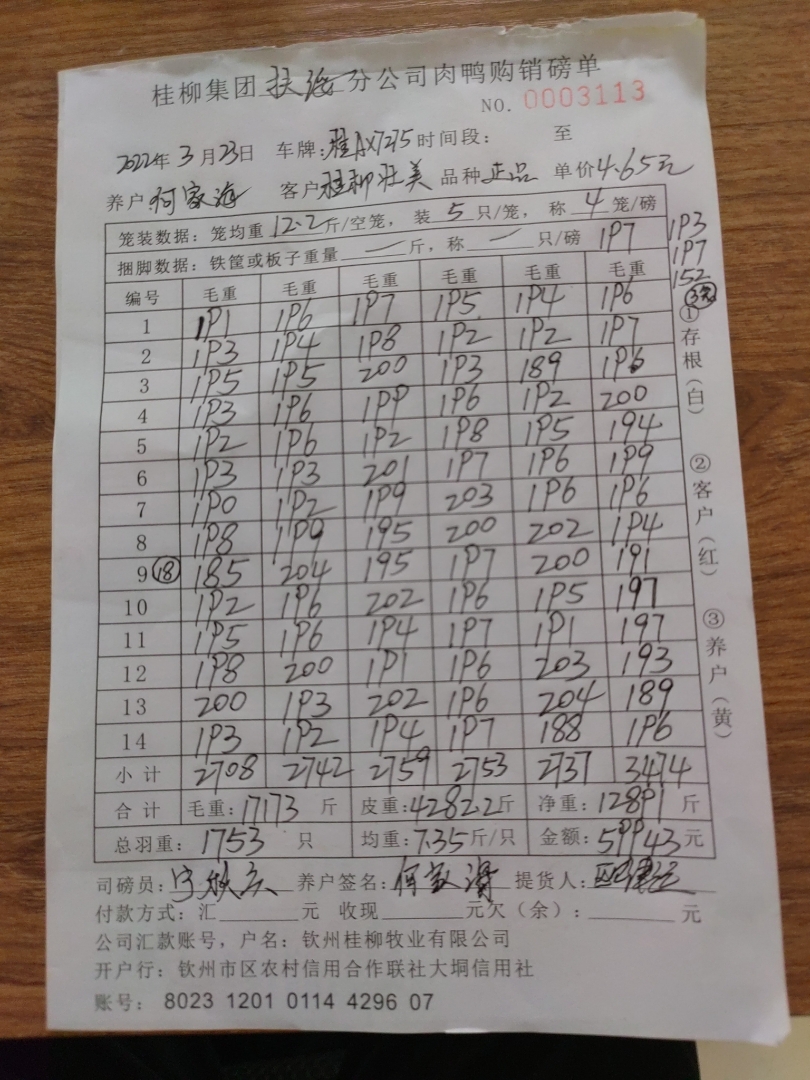 桂柳集团扶海分公司肉鸭购销磅单
NO. 0003113
2022年3月23日 车牌:桂AX7275 时间段: 至
养户 何家海 客户 桂柳壮美 品种 正品 单价 4.65元
笼装数据: 笼均重 12.2 斤/空笼, 装 5 只/笼, 称 4 笼/磅
捆脚数据: 铁筐或板子重量 — 斤, 称 — 只/磅 197 193
197
152
3只
编号 毛重 毛重 毛重 毛重 毛重 毛重
1 191 196 197 195 194 196
2 193 194 198 192 192 197
3 195 195 200 193 189 196
4 193 196 199 196 192 200
5 192 196 192 198 195 194
6 193 193 201 197 196 199
7 190 192 199 203 196 196
8 198 199 195 200 202 194
9 ⑱ 185 204 195 197 200 191
10 192 196 202 196 195 197
11 195 196 194 197 191 197
12 198 200 191 196 203 193
13 200 193 202 196 204 189
14 193 192 194 197 188 196
小计 2708 2742 2759 2753 2737 3474
合计 毛重: 17173 斤 皮重: 4282.2 斤 净重: 12891 斤
总羽重: 1753 只 均重: 7.35 斤/只 金额: 59943 元
司磅员: 养户签名: 何家海 提货人:
付款方式: 汇 元 收现 元欠(余): 元
公司汇款账号, 户名: 钦州桂柳牧业有限公司
开户行: 钦州市区农村信用合作联社大垌信用社
账号: 8023 1201 0114 4296 07
①存根(白) ②客户(红) ③养户(黄)